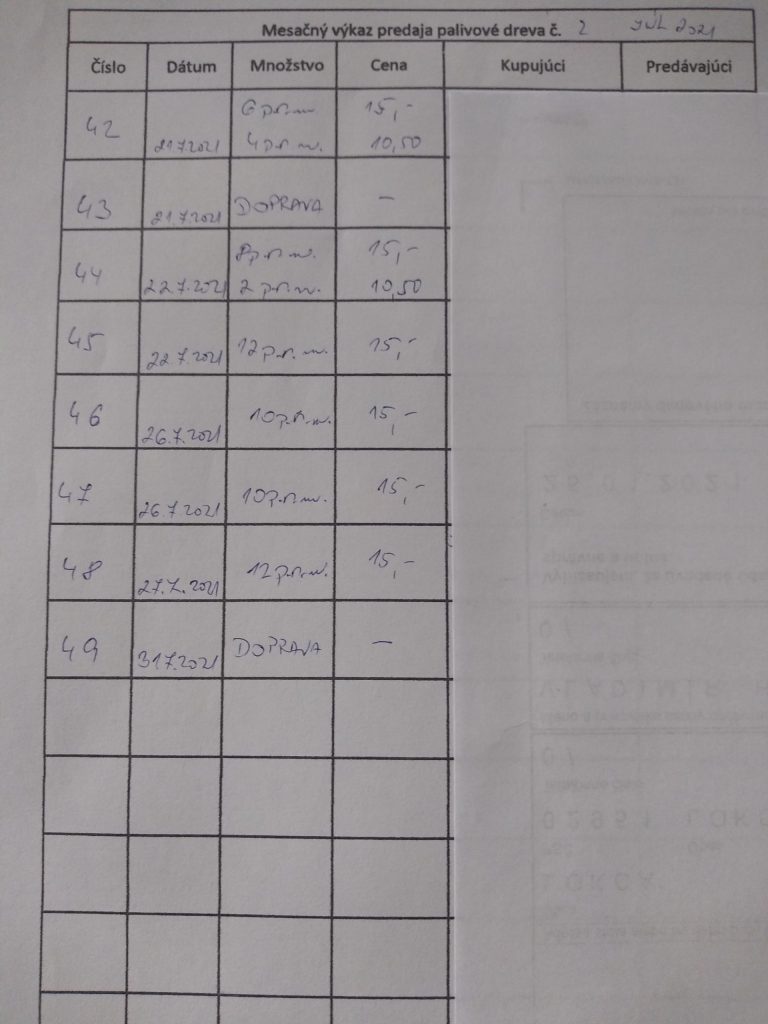 Mesačný výkaz predaja palivové dreva č. 2 JÚL 2021
Číslo Dátum Množstvo Cena Kupujúci Predávajúci
6 p.r.m. 15,-
42 21.7.2021 4 p.r.m. 10,50
43 21.7.2021 DOPRAVA –
8 p.r.m. 15,-
44 22.7.2021 2 p.r.m. 10,50
45 22.7.2021 12 p.r.m. 15,-
46 26.7.2021 10 p.r.m. 15,-
47 26.7.2021 10 p.r.m. 15,-
48 27.7.2021 12 p.r.m. 15,-
49 31.7.2021 DOPRAVA –